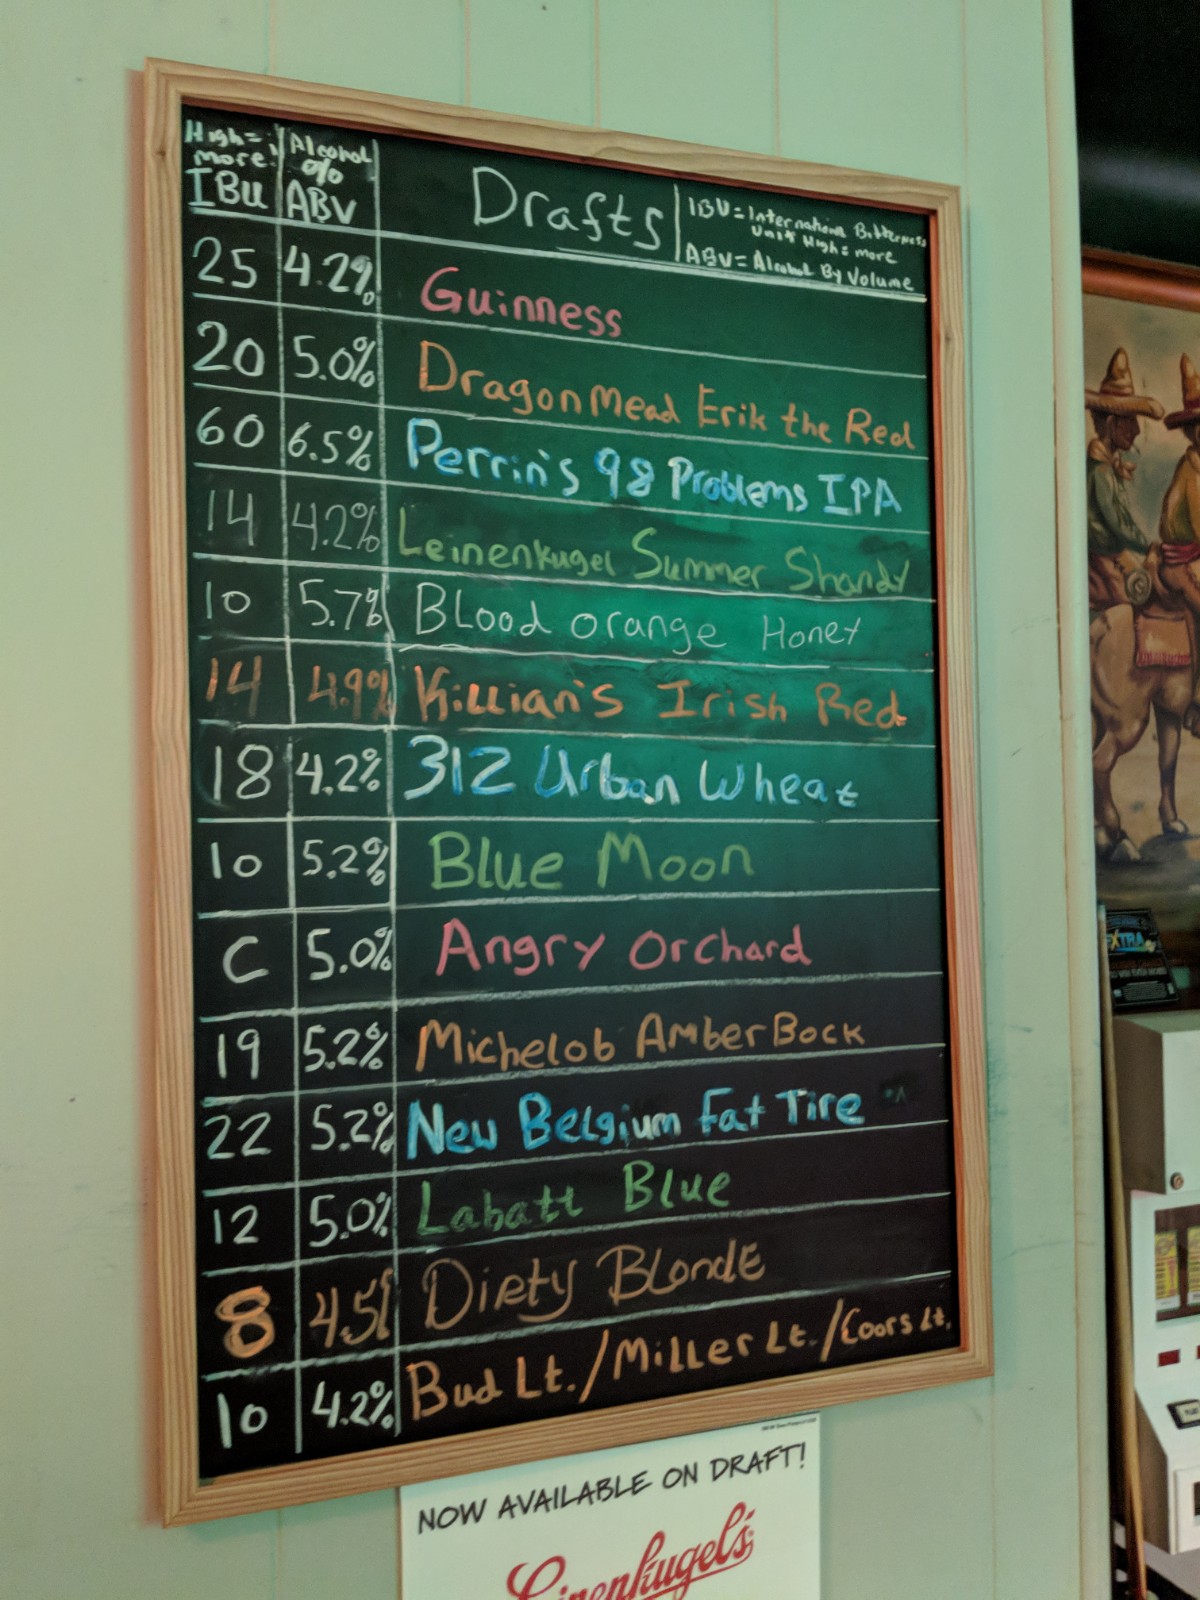 High= more IBU
Alcohol % ABV
Drafts
IBU = Internation Bitterness Unit High = more
ABV = Alcohol By Volume
25 4.2% Guinness
20 5.0% Dragon Mead Erik the Red
60 6.5% Perrin's 98 Problems IPA
14 4.2% Leinenkugel Summer Shandy
10 5.7% Blood orange Honey
14 4.9% Killian's Irish Red
18 4.2% 312 Urban Wheat
10 5.2% Blue Moon
C 5.0% Angry Orchard
19 5.2% Michelob Amber Bock
22 5.2% New Belgium Fat Tire
12 5.0% Labatt Blue
8 4.5% Dirty Blonde
10 4.2% Bud Lt./Miller Lt./Coors Lt.
NOW AVAILABLE ON DRAFT!
Leinenkugel's
EXTRA